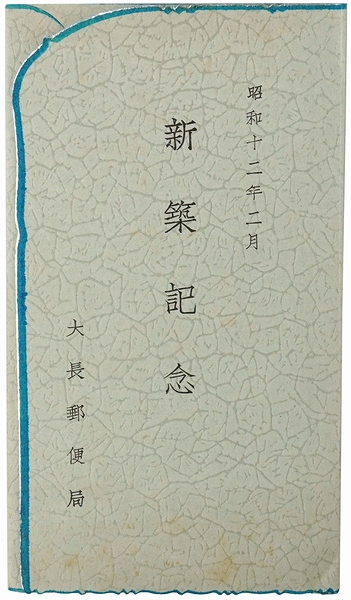 昭和十二年二月
新築記念
大長郵便局